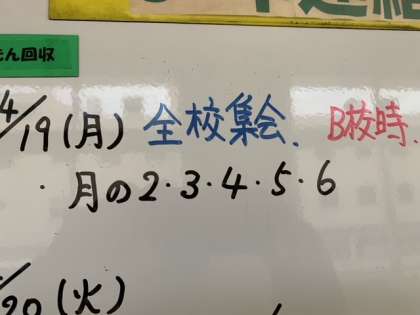 ん回収
4/19(月) 全校集会、B校時.
・月の2・3・4・5・6
/20(火)